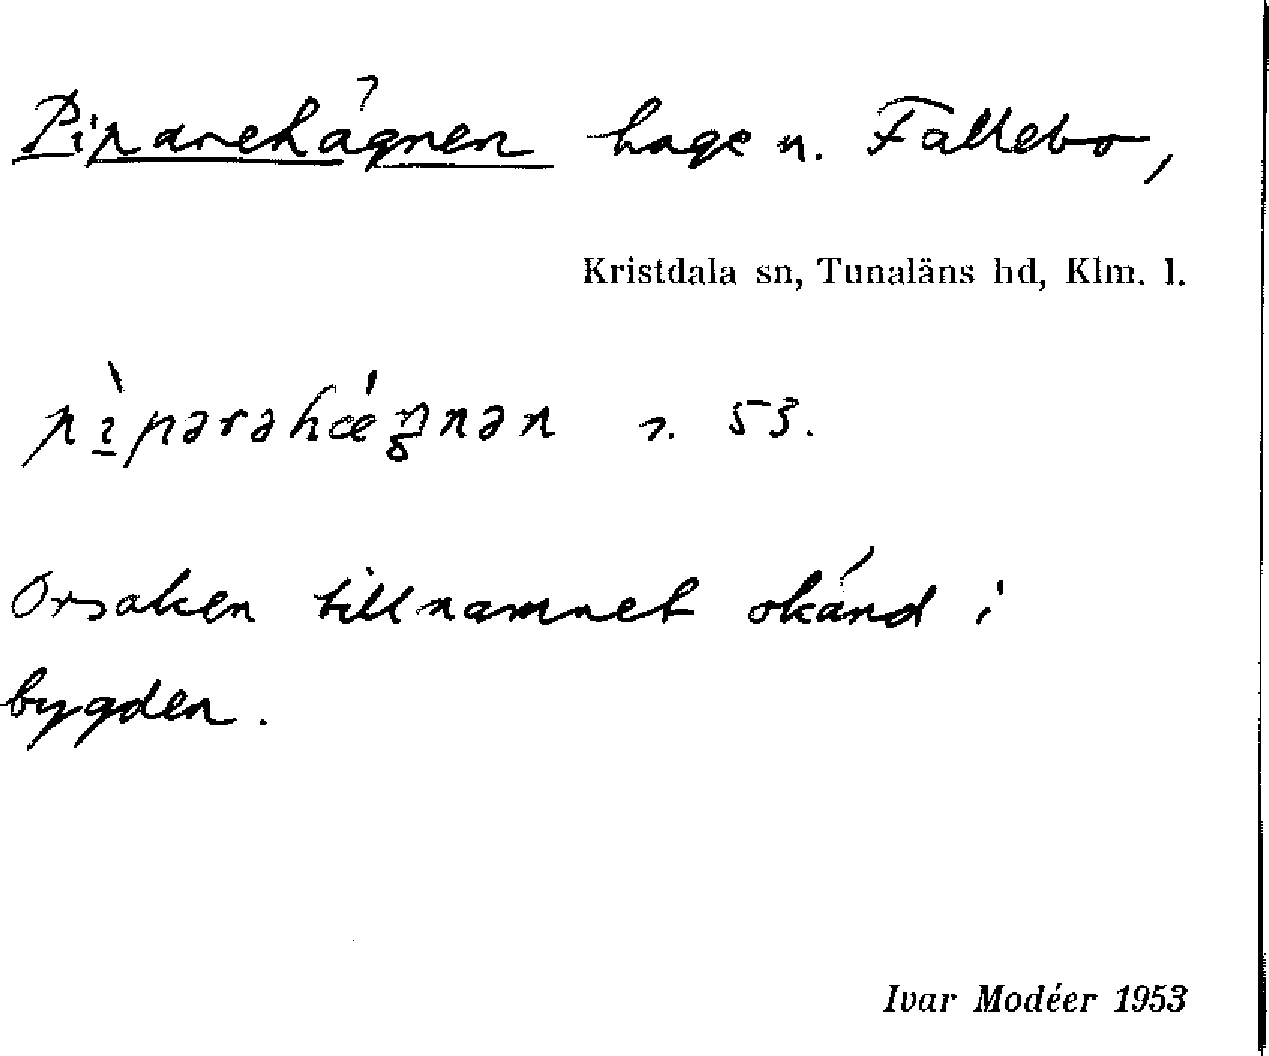 Piparehägnen hage n. Fallebo,
Kristdala sn, Tunaläns hd, Klm. l.
pı̀pərəhǽŋnən 53.
Orsaken till namnet okänd i
bygden.
Ivar Modéer 1953